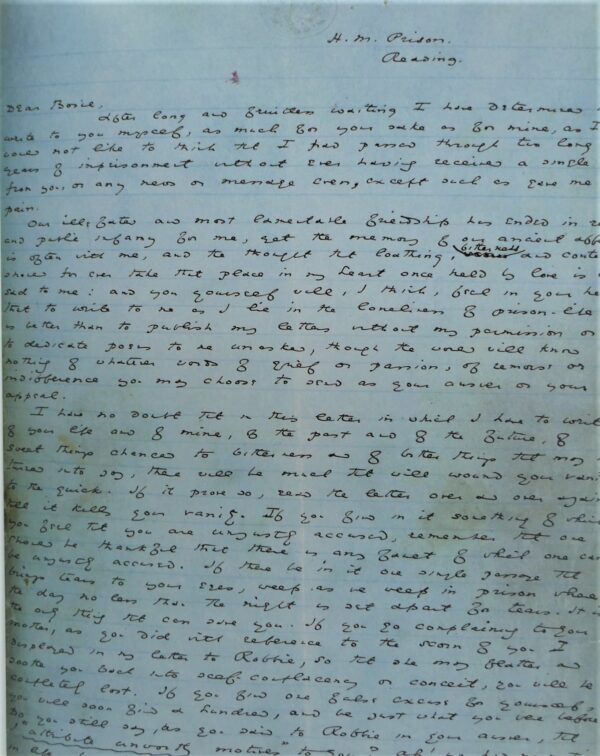 H. M. Prison.
Reading.
Dear Bosie,
After long and fruitless waiting I have determined
write to you myself, as much for your sake as for mine, as I
would not like to think that I had passed through two long
years of imprisonment without ever having received a single
from you, or any news or message even, except such as gave me
pain.
Our ill-fated and most lamentable friendship has ended in
and public infamy for me, yet the memory of our ancient
is often with me, and the thought that loathing, bitterness and
should for ever take that place in my heart once held by love is
sad to me: and you yourself will, I think, feel in your
that to write to me as I lie in the loneliness of prison-life
is better than to publish my letters without my permission or
to dedicate poems to me unasked, though the world will know
nothing of whatever words of grief or passion, of remorse or
indifference you may choose to send as your answer or your
appeal.
I have no doubt that in this letter in which I have to write
of your life and of mine, of the past and of the future, of
sweet things changed to bitterness and of bitter things that may
turned into joy, there will be much that will wound your
to the quick. If it prove so, read the letter over and over again
till it kills your vanity. If you find in it something of which
you feel that you are unjustly accused, remember that one
should be thankful that there is any fault of which one can
be unjustly accused. If there be in it one single passage that
brings tears to your eyes, weep as we weep in prison where
the day no less than the night is set apart for tears. It is
the only thing that can save you. If you go complaining to your
mother, as you did with reference to the scorn of you I
displayed in my letter to Robbie, so that she may flatter and
soothe you back into self-complacency or conceit, you will be
completely lost. If you find one false excuse for yourself,
you will soon find a hundred, and be just what you were before
Do you still say, as you said to Robbie in your answer, that
I "attribute unworthy motives" to you?